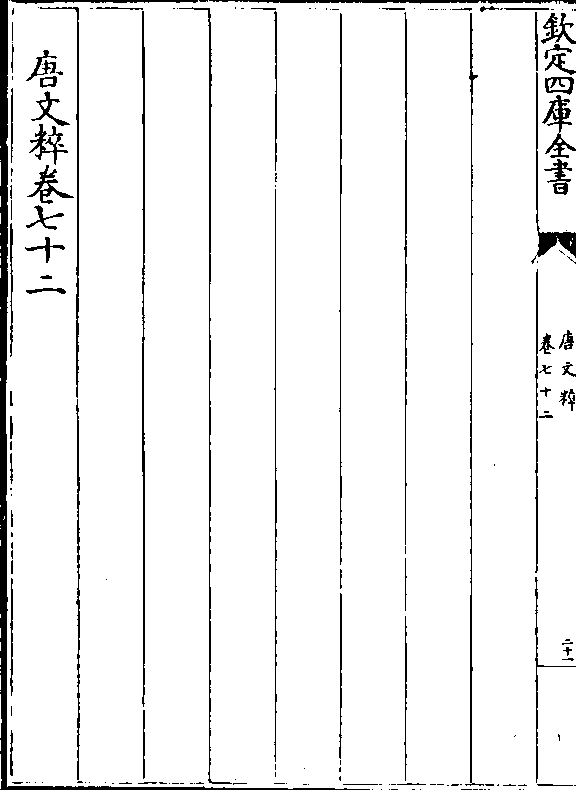 欽定四庫全書
唐文粹
卷七十二
二十一
唐文粹卷七十二